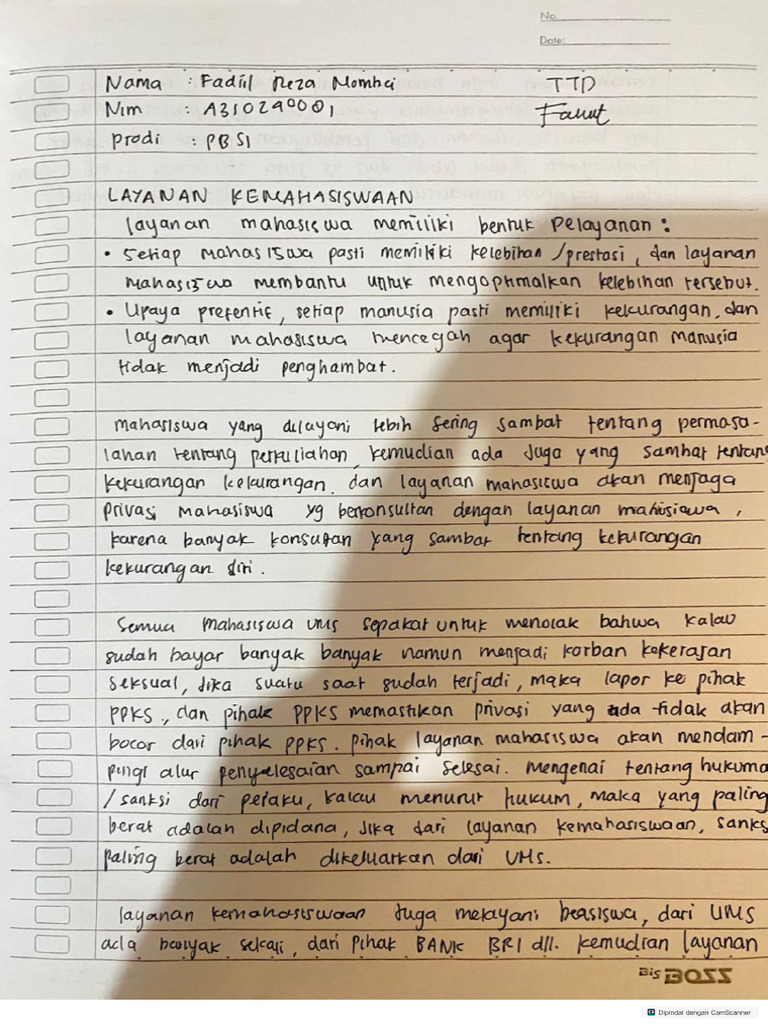 No.
Date:
Nama : Fadiil Reza Mombai TTD
Nim : A310290001
prodi : PBSI
LAYANAN KEMAHASISWAAN
layanan mahasiswa memiliki bentuk pelayanan :
• Setiap mahasiswa pasti memiliki kelebihan /prestasi, dan layanan
mahasiswa membantu untuk mengoptimalkan kelebihan tersebut.
• Upaya prefentif, setiap manusia pasti memiliki kekurangan, dan
layanan mahasiswa mencegah agar kekurangan manusia
tidak menjadi penghambat.
mahasiswa yang dilayani lebih sering sambat tentang permasa-
lahan tentang perkuliahan, kemudian ada juga yang sambat tentang
kekurangan kekurangan. dan layanan mahasiswa akan menjaga
privasi mahasiswa yg berkonsultan dengan layanan mahasiswa,
karena banyak konsultan yang sambat tentang kekurangan
kekurangan diri.
Semua mahasiswa ums sepakat untuk menolak bahwa kalau
sudah bayar banyak banyak namun menjadi korban kekerasan
seksual, Jika suatu saat sudah terjadi, maka lapor ke pihak
PPKS, dan pihak PPKS memastikan privasi yang ada tidak akan
bocor dari pihak PPKS. pihak layanan mahasiswa akan mendam-
pingi alur penyelesaian sampai selesai. mengenai tentang hukuma
/sanksi dari pelaku, kalau menurut hukum, maka yang paling
berat adalah dipidana, Jika dari layanan kemahasiswaan, sanks
paling berat adalah dikeluarkan dari UMS.
layanan kemahasiswaan Juga melayani beasiswa, dari UMS
ada banyak sekali, dari pihak BANK BRI dll. kemudian layanan
Bis BOSS
Dipindai dengan CamScanner